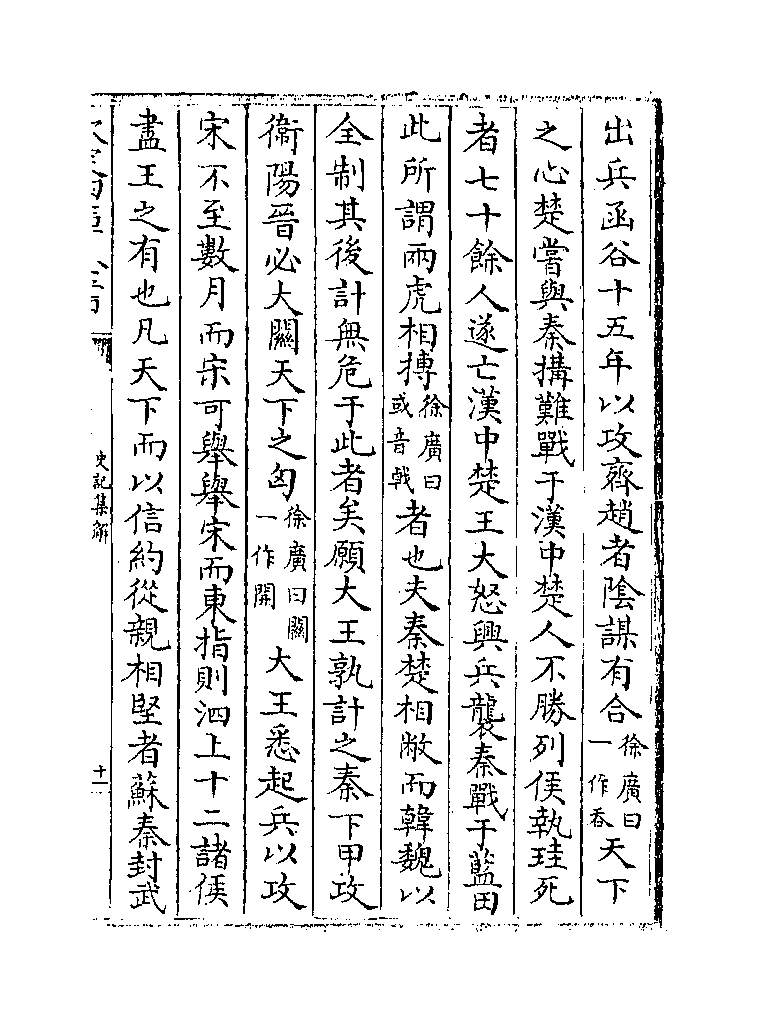 出兵函谷十五年以攻齊趙者陰謀有合徐廣曰一作吞天下
之心楚嘗與秦搆難戰于漢中楚人不勝列侯執珪死
者七十餘人遂亡漢中楚王大怒興兵襲秦戰于藍田
此所謂兩虎相搏徐廣曰或音戟者也夫秦楚相敝而韓魏以
全制其後計無危于此者矣願大王孰計之秦下甲攻
衛陽晉必大關天下之匈徐廣曰關一作開大王悉起兵以攻
宋不至數月而宋可舉舉宋而東指則泗上十二諸侯
盡王之有也凡天下而以信約從親相堅者蘇秦封武
史記集解
十一